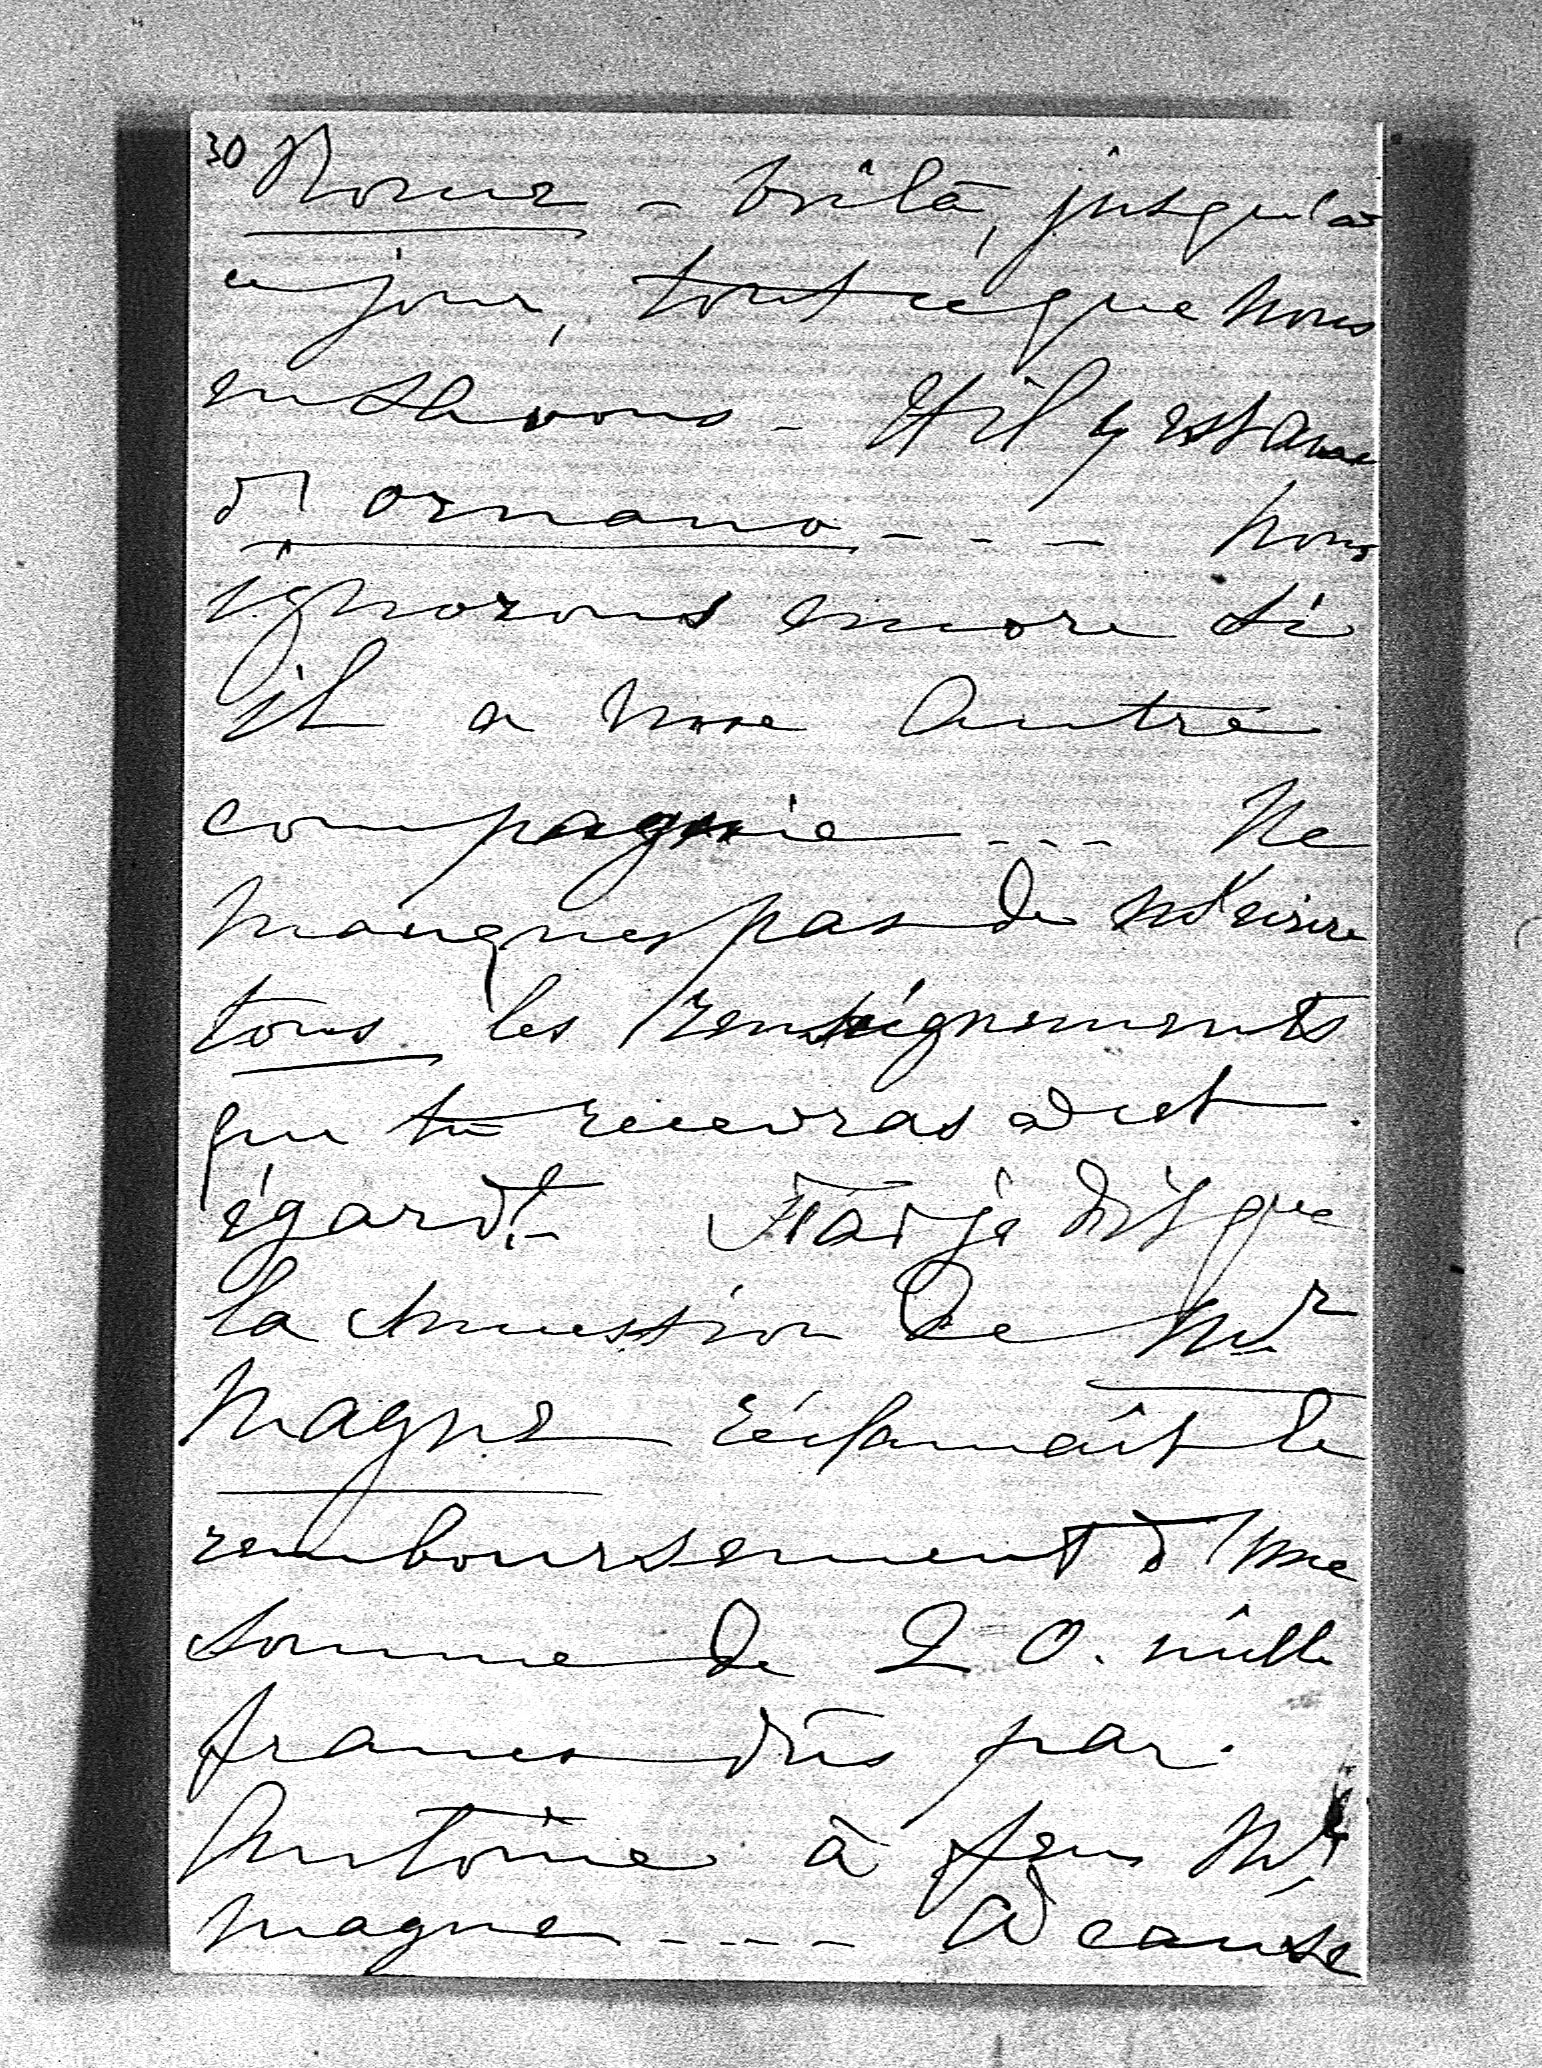 30 Rome - voilà, jusqu'à
ce jour, tout ce que nous
en savons - Et il y est avec
d'ornano - - - nous
ignorons encore si
il a une autre
compagnie - - - Ne
manques pas de m'écrire
tous les renseignements
que tu recevras à cet
égard. - T'ai-je dit que
la succession de Mr
Magne réclamait le
remboursement d'une
somme de 20. mille
francs dûs par
Antoine à feu Mr
magne - - - - à cause